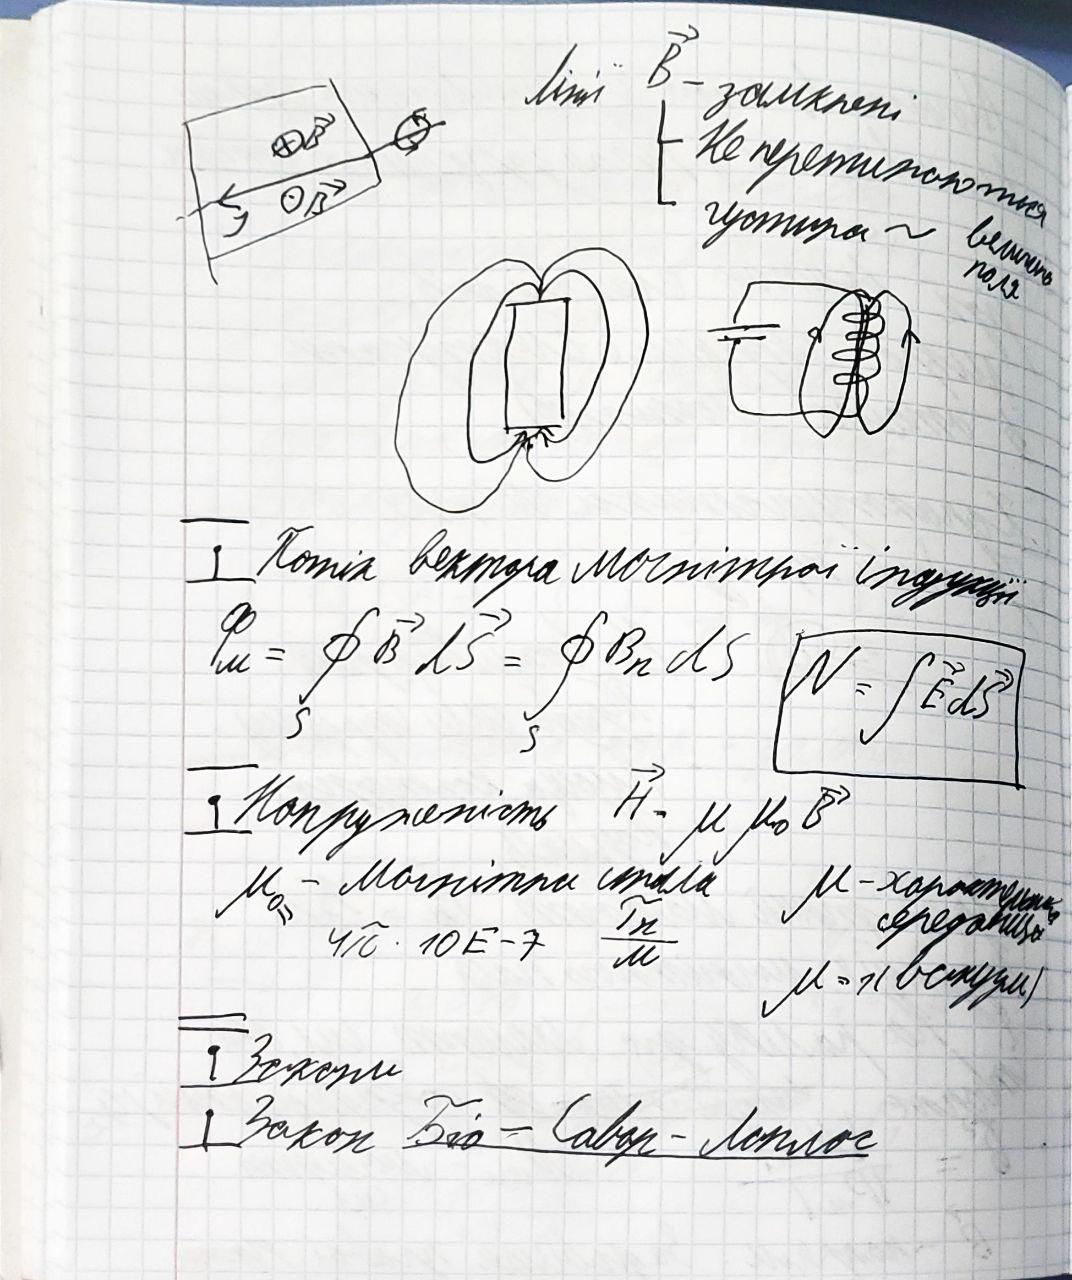 ⊕B⃗
⊙B⃗
J
Лінії B⃗ – замкнені
Не перетинаються
густина ~ величень
поля
Потік вектора магнітної індукції
Φм = ∮ B⃗ dS⃗ = ∮ Bn dS
S S
N = ∫ E⃗ dS⃗
Напруженість H⃗ = μ μ₀ B⃗
μ₀ – магнітна стала
= 4π · 10E-7 Тл/м
μ – характеристика
середовища
μ = 1 (вакуум)
Закони
Закон Біо – Савар – Лаплас